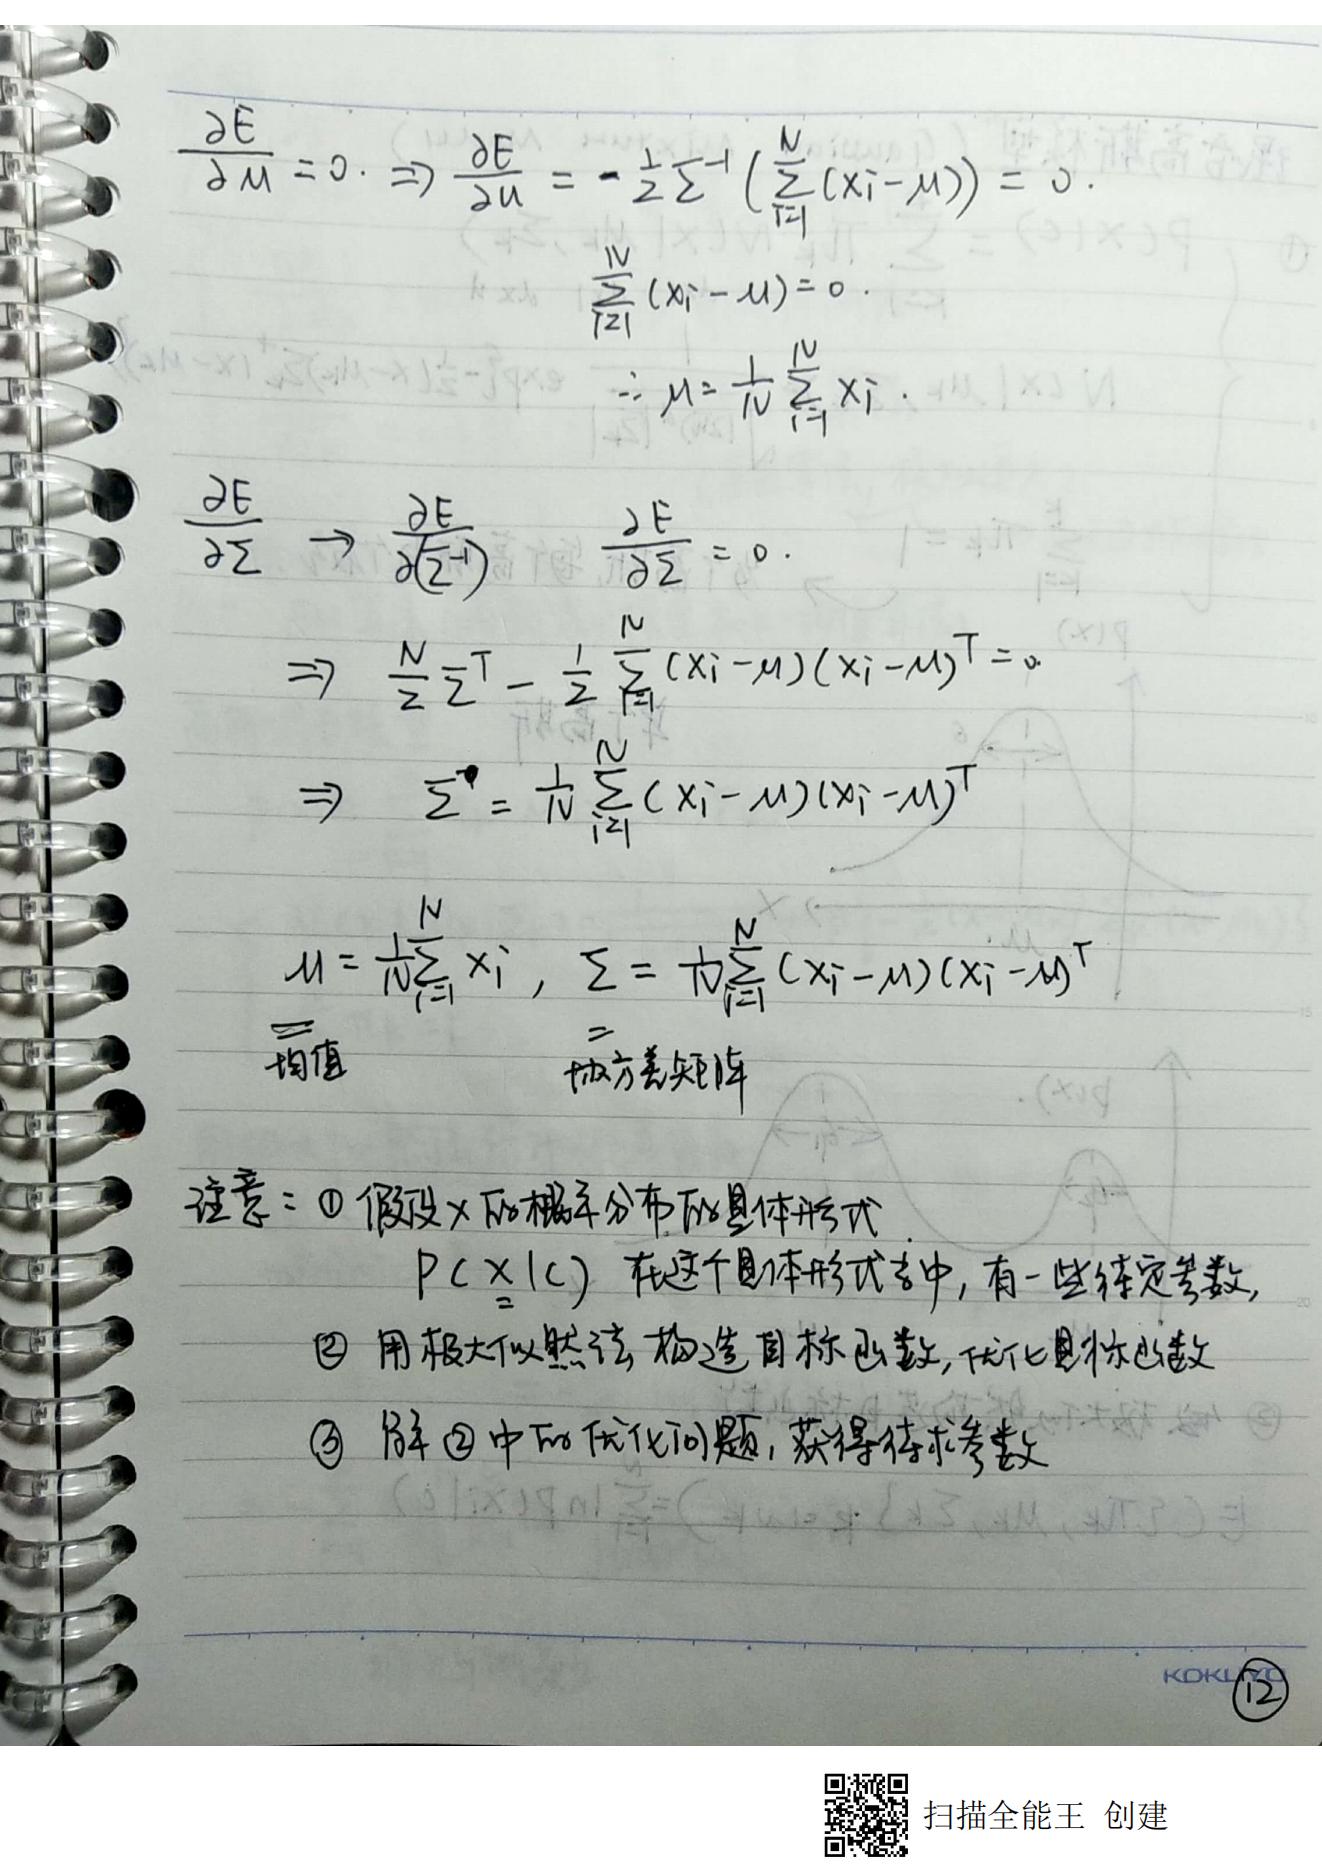 ∂E/∂μ = 0. ⇒ ∂E/∂μ = -1/2 Σ⁻¹ (∑_{i=1}^{N} (xi - μ)) = 0.
∑_{i=1}^{N} (xi - μ) = 0.
∴ μ = 1/N ∑_{i=1}^{N} xi.
∂E/∂Σ → ∂E/∂(Σ⁻¹) ∂E/∂Σ = 0.
⇒ N/2 Σᵀ - 1/2 ∑_{i=1}^{N} (xi - μ)(xi - μ)ᵀ = 0.
⇒ Σ = 1/N ∑_{i=1}^{N} (xi - μ)(xi - μ)ᵀ
μ = 1/N ∑_{i=1}^{N} xi, Σ = 1/N ∑_{i=1}^{N} (xi - μ)(xi - μ)ᵀ
均值 协方差矩阵
注意: ① 假设x的概率分布的具体形式.
P(x|C) 在这个具体形式中, 有一些待定参数,
② 用极大似然法构造目标函数, 优化目标函数
③ 解②中的优化问题, 获得待求参数
KOKUYO
⑫
扫描全能王 创建